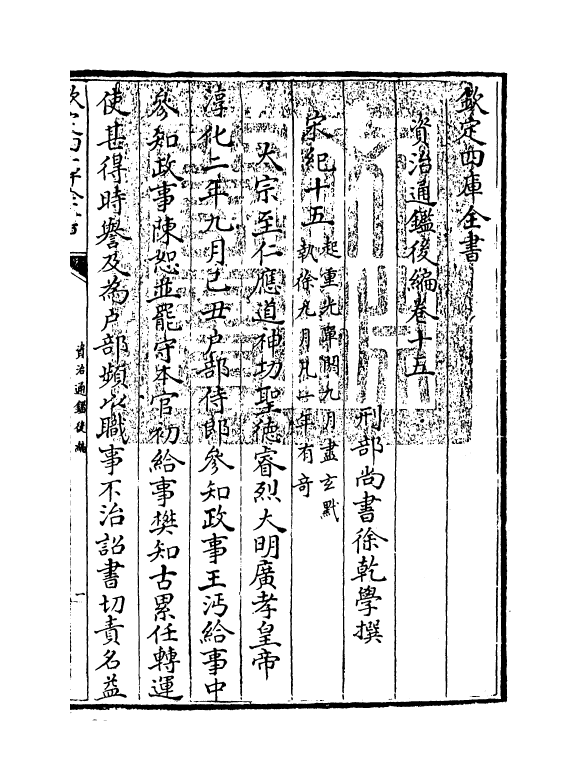 欽定四庫全書
資治通鑑後編卷十五
刑部尚書徐乾學撰
宋紀十五
起重光單閼九月盡玄黓
執徐九月凡一年有奇
太宗至仁應道神功聖徳睿烈大明廣孝皇帝
淳化二年九月己丑户部侍郎參知政事王沔給事中
參知政事陳恕並罷守本官初給事樊知古累任轉運
使甚得時譽及為户部頻以職事不治詔書切責名益
資治通鑑後編
一